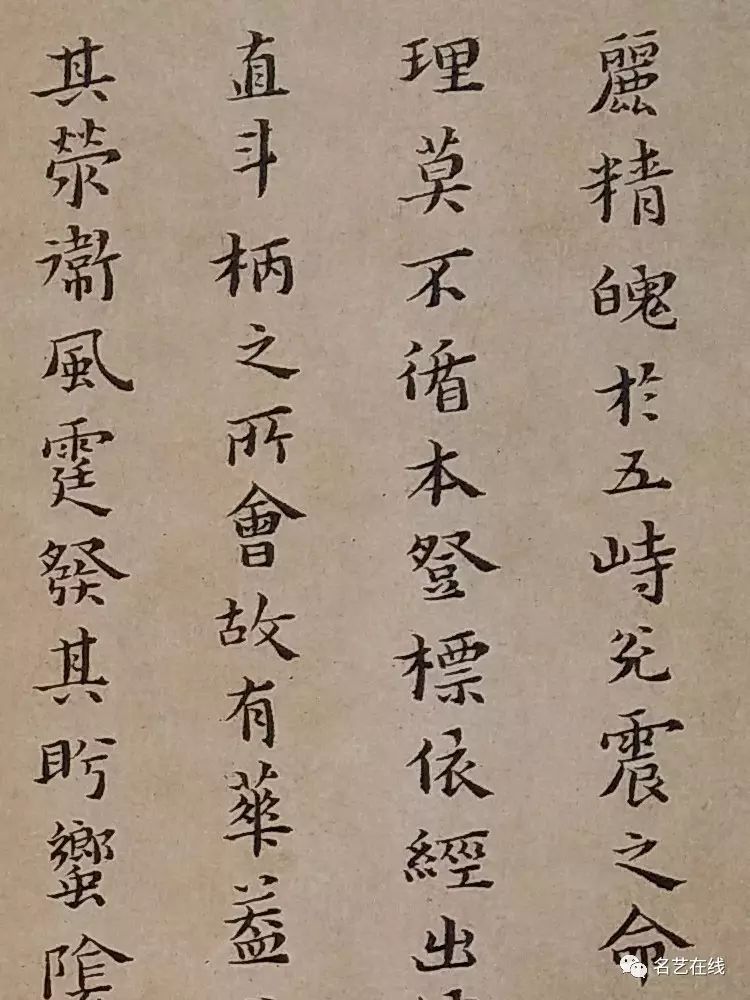 麗精魄於五峙兊震之命
理莫不循本登標依經出
直斗柄之所會故有華蓋
其滎衛風霆發其肹蠁陰
名艺在线